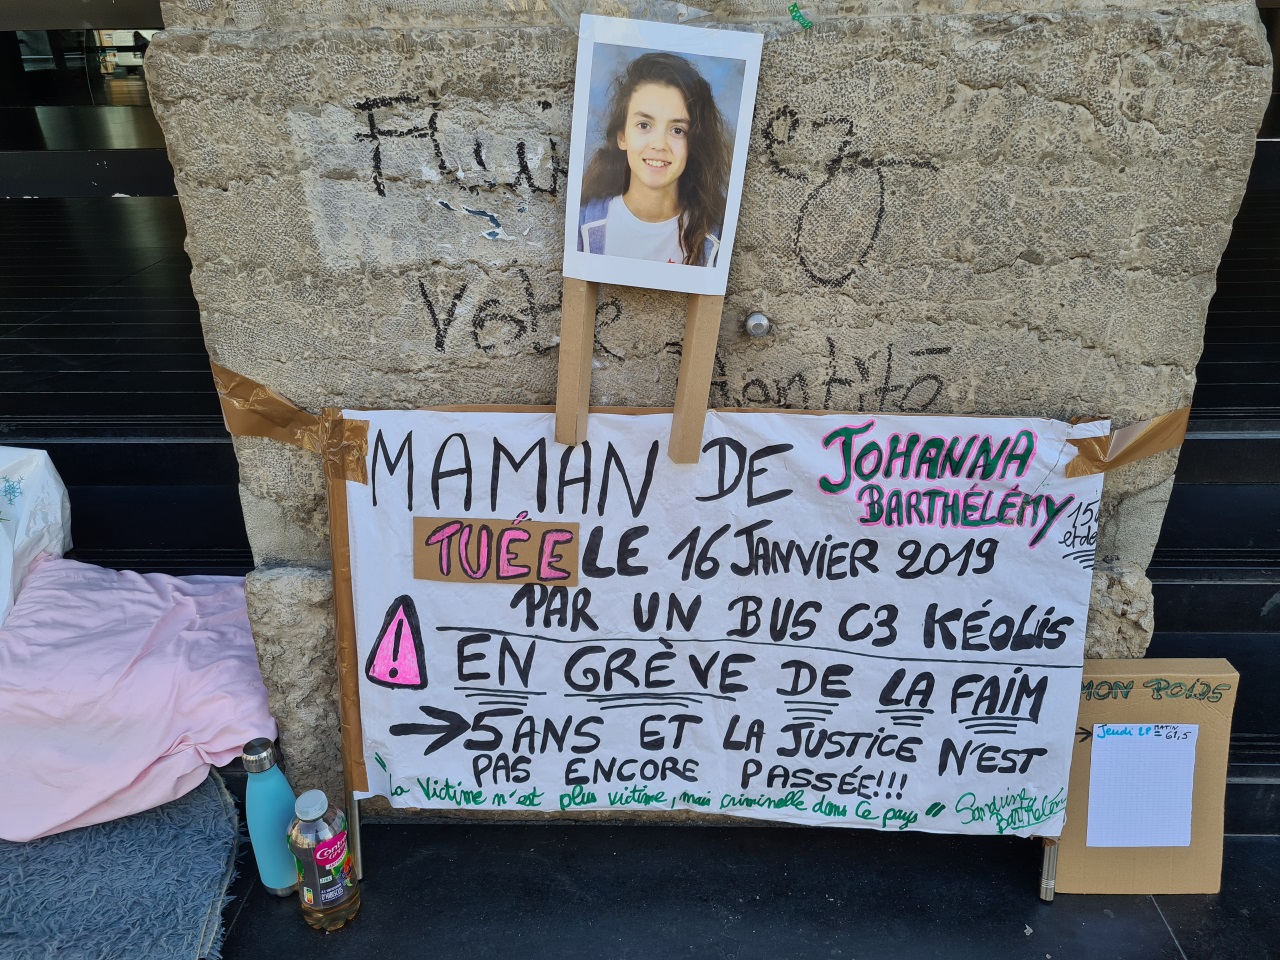 Votre
MAMAN DE JOHANNA
BARTHÉLÉMY
TUÉE LE 16 JANVIER 2019
PAR UN BUS C3 KÉOLIS
! EN GRÈVE DE LA FAIM
→ 5 ANS ET LA JUSTICE N'EST
PAS ENCORE PASSÉE!!!
"La victime n'est plus victime, mais criminelle dans ce pays"
MON POIDS
→ Jeudi
MATIN
= 61,5